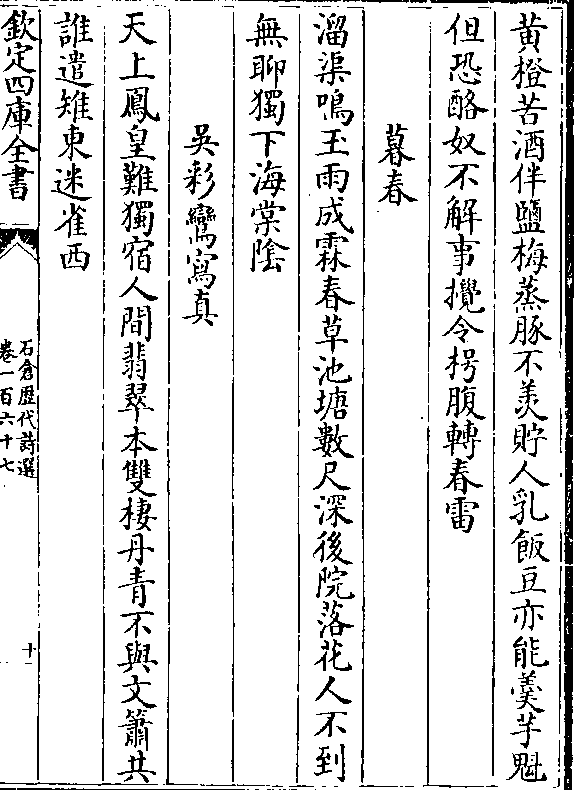 黄橙苦酒伴鹽梅蒸豚不羨貯人乳飯豆亦能羹芋魁
但恐酪奴不解事攪令枵腹轉春雷
暮春
溜渠鳴玉雨成霖春草池塘數尺深後院落花人不到
無聊獨下海棠陰
吳彩鸞寫真
天上鳳皇難獨宿人間翡翠本雙棲丹青不與文簫共
誰遣雉東迷雀西
欽定四庫全書
石倉歴代詩選
卷一百六十七
十